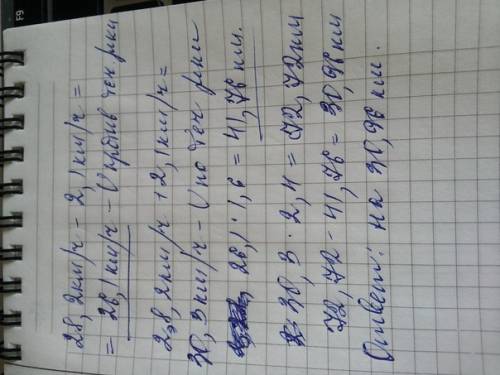 28,2км/ч - 2,1км/ч =
= 26,1км/ч - V против теч. реки
28,2км/ч + 2,1км/ч =
30,3км/ч - V по теч реки
26,1 · 1,6 = 41,76 км.
30,3 · 2,4 = 72,72км
72,72 - 41,76 = 30,96км
Ответ: на 30,96 км.
F9